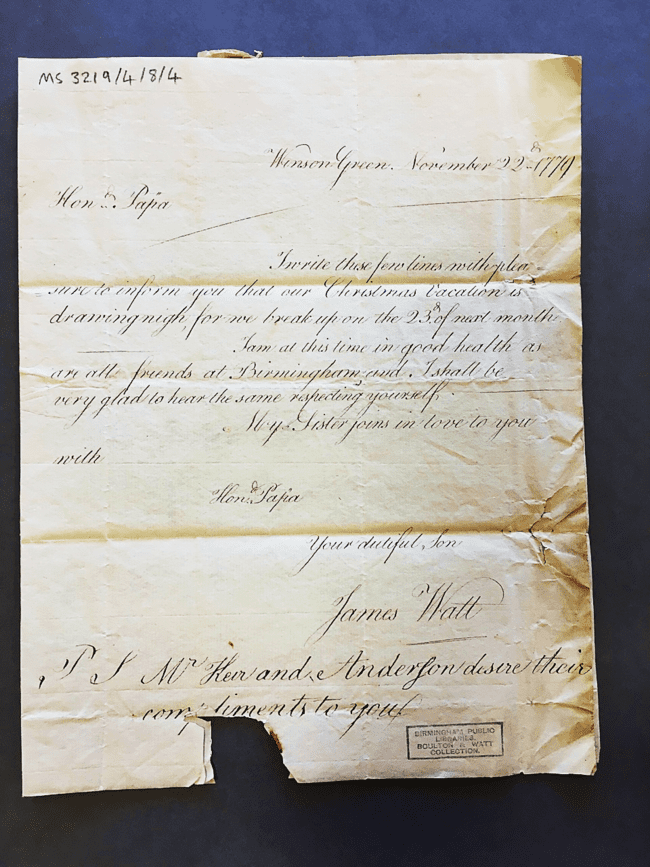 MS 3219/4/8/4
Winson Green. November 22d 1779
Hond. Papa
I write these few lines with plea
sure to inform you that our Christmas Vacation is
drawing nigh, for we break up on the 23d. of next month
I am at this time in good health as
are all friends at Birmingham, and I shall be
very glad to hear the same respecting yourself.
My Sister joins in love to you
with
Hond. Papa
Your dutiful Son
James Watt
P S Mr Keir and Anderson desire their
compliments to you
BIRMINGHAM PUBLIC
LIBRARIES.
BOULTON & WATT
COLLECTION.